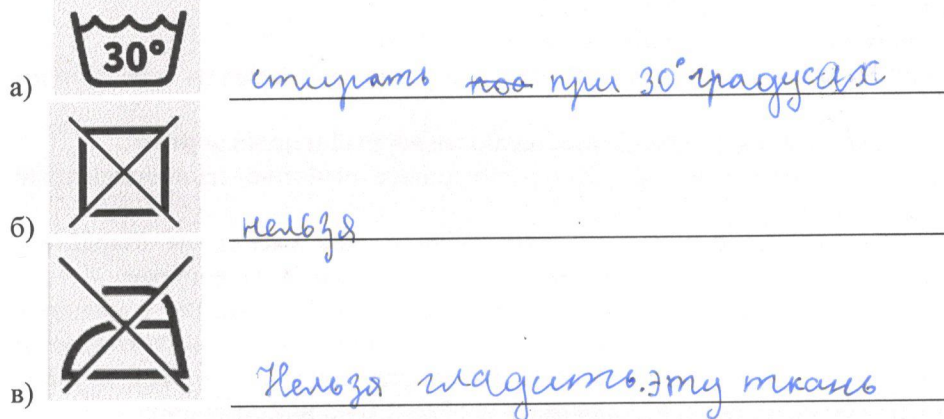 30°
а) стирать при 30° градусах
б) нельзя
в) Нельзя гладить. эту ткань